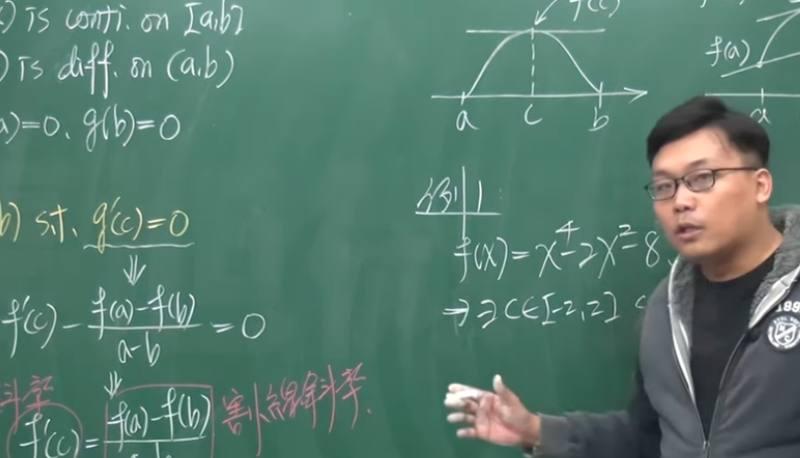 is conti. on [a,b]
is diff. on (a,b)
a)=0、g(b)=0
b) s.t. g'(c)=0
⇓
f'(c) - \frac{f(a)-f(b)}{a-b} = 0
⇓
斜率
f'(c) = \frac{f(a)-f(b)}{a-b}
割線斜率.
f(c)
a c b
例1:
f(x)=x^4-2x^2-8
⇒ ∃ c∈[-2,2] s
f(a)
a
189